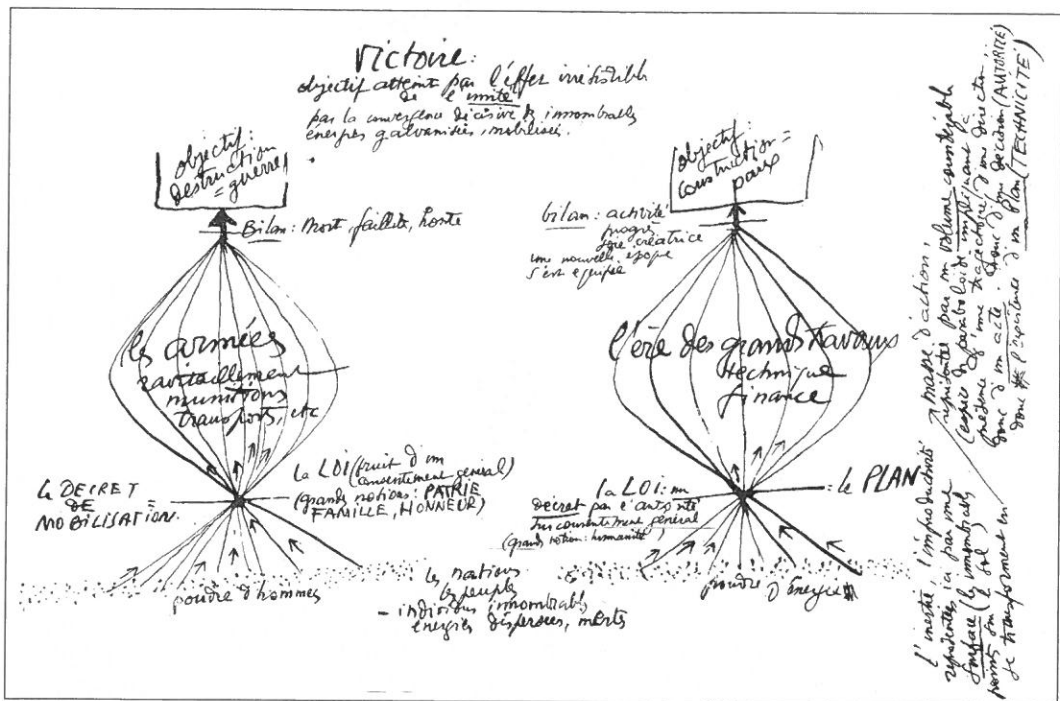 Victoire:
objectif atteint par l'effet irrésistible
de l'unité
par la convergence décisive d'innombrables
énergies galvanisées, mobilisées.
objectif:
destruction
= guerre
Bilan: Mort, faillite, honte
les armées
ravitaillement
munitions
transports, etc
le DECRET
DE
MOBILISATION =
la LOI (fruit d'un
consentement général)
(grandes notions: PATRIE
FAMILLE, HONNEUR)
poudre d'hommes
les nations
les peuples
– individus innombrables
énergies dispersées, inertes
objectif:
construction =
paix
bilan: activité
progrès
joie créatrice
une nouvelle époque
s'est équipée
l'ère des grands travaux
technique
finance
la LOI: un
décret par l'autorité
sur consentement général
(grande notion: humanité)
= le PLAN
poudre d'énergie
L'inertie, l'improductivité
représentées ici par une
surface (les innombrables
points sur le sol)
se transforment en
masse d'action,
représentée par un volume considérable
(espèce de paraboloïde impliquant la
présence d'une trajectoire, d'une direction,
donc d'un acte. Donc d'une décision (AUTORITÉ)
donc de l'existence d'un Plan (TECHNICITÉ)